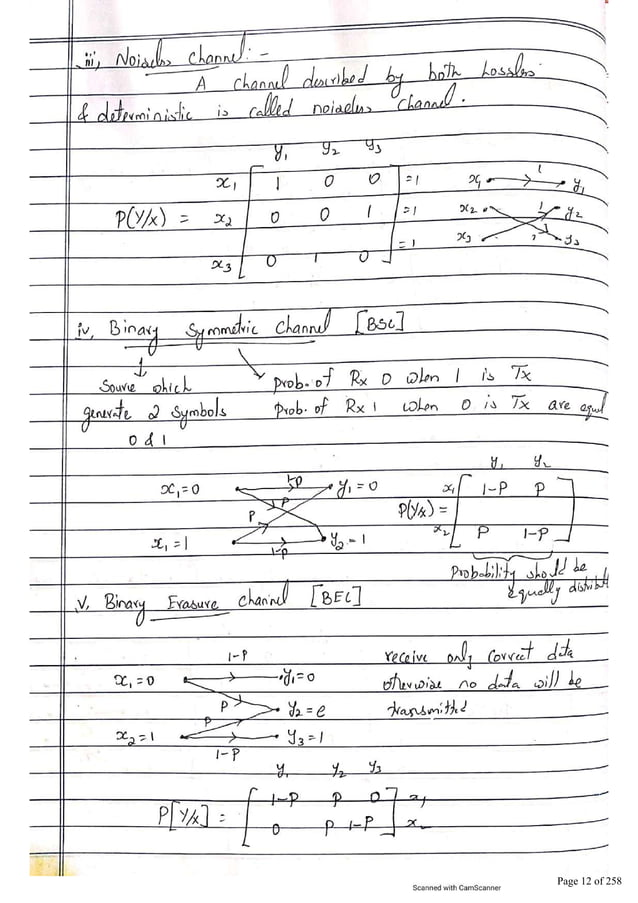 iii, Noiseless Channel:-
A channel described by both Lossless
& deterministic is called noiseless channel.
y1 y2 y3
x1 1 0 0 =1
P(Y/X) = x2 0 0 1 =1
x3 0 1 0 =1
x1 1 y1
x2 1 y2
x3 1 y3
iv, Binary Symmetric Channel [BSC]
Source which
generate 2 symbols
0 & 1
Prob. of Rx 0 when 1 is Tx
Prob. of Rx 1 when 0 is Tx are equal
x1=0 1-P y1=0
P
P
x1=1 1-P y2=1
y1 y2
x1 1-P P
P(Y/X) =
x2 P 1-P
Probability should be
equally distribut
v, Binary Erasure Channel [BEC]
1-P
x1=0 y1=0
P y2=e
P
x2=1 y3=1
1-P
receive only correct data
otherwise no data will be
transmitted
y1 y2 y3
P[Y/X] = 1-P P 0 x1
0 P 1-P x2
Scanned with CamScanner
Page 12 of 258